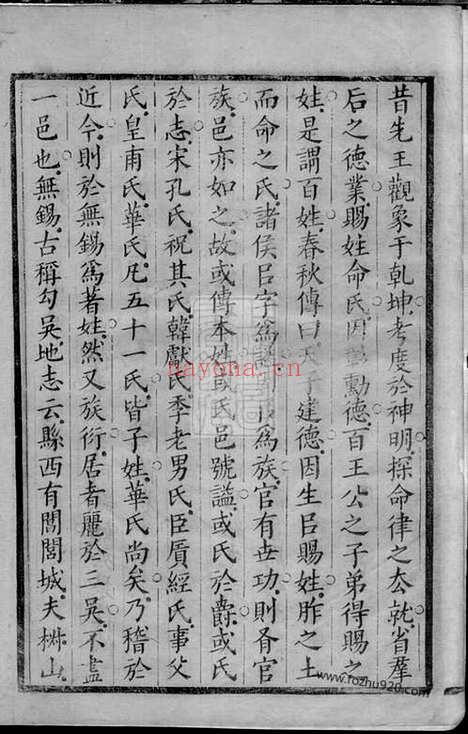 昔先王觀象于乾坤考度於神明探命律之厺就省羣
后之德業賜姓命氏因彰勳德百王公之子弟得賜之
姓是謂百姓春秋傳曰天子建德因生㠯賜姓胙之土
而命之氏諸侯㠯字爲謚 㠯爲族官有世功則有官
族邑亦如之故或傳本姓或氏邑號謚或氏於爵或氏
於志宋孔氏祝其氏韓獻氏季老男氏臣厧經氏事父
氏皇甫氏華氏凡五十一氏皆子姓華氏尚矣乃稽於
近今則於無錫爲著姓然又族衍居者麗於三吳不盡
一邑也無錫古稱勾吳地志云縣西有闔閭城夫椒山
nayona.cn
www.rozhu920.com